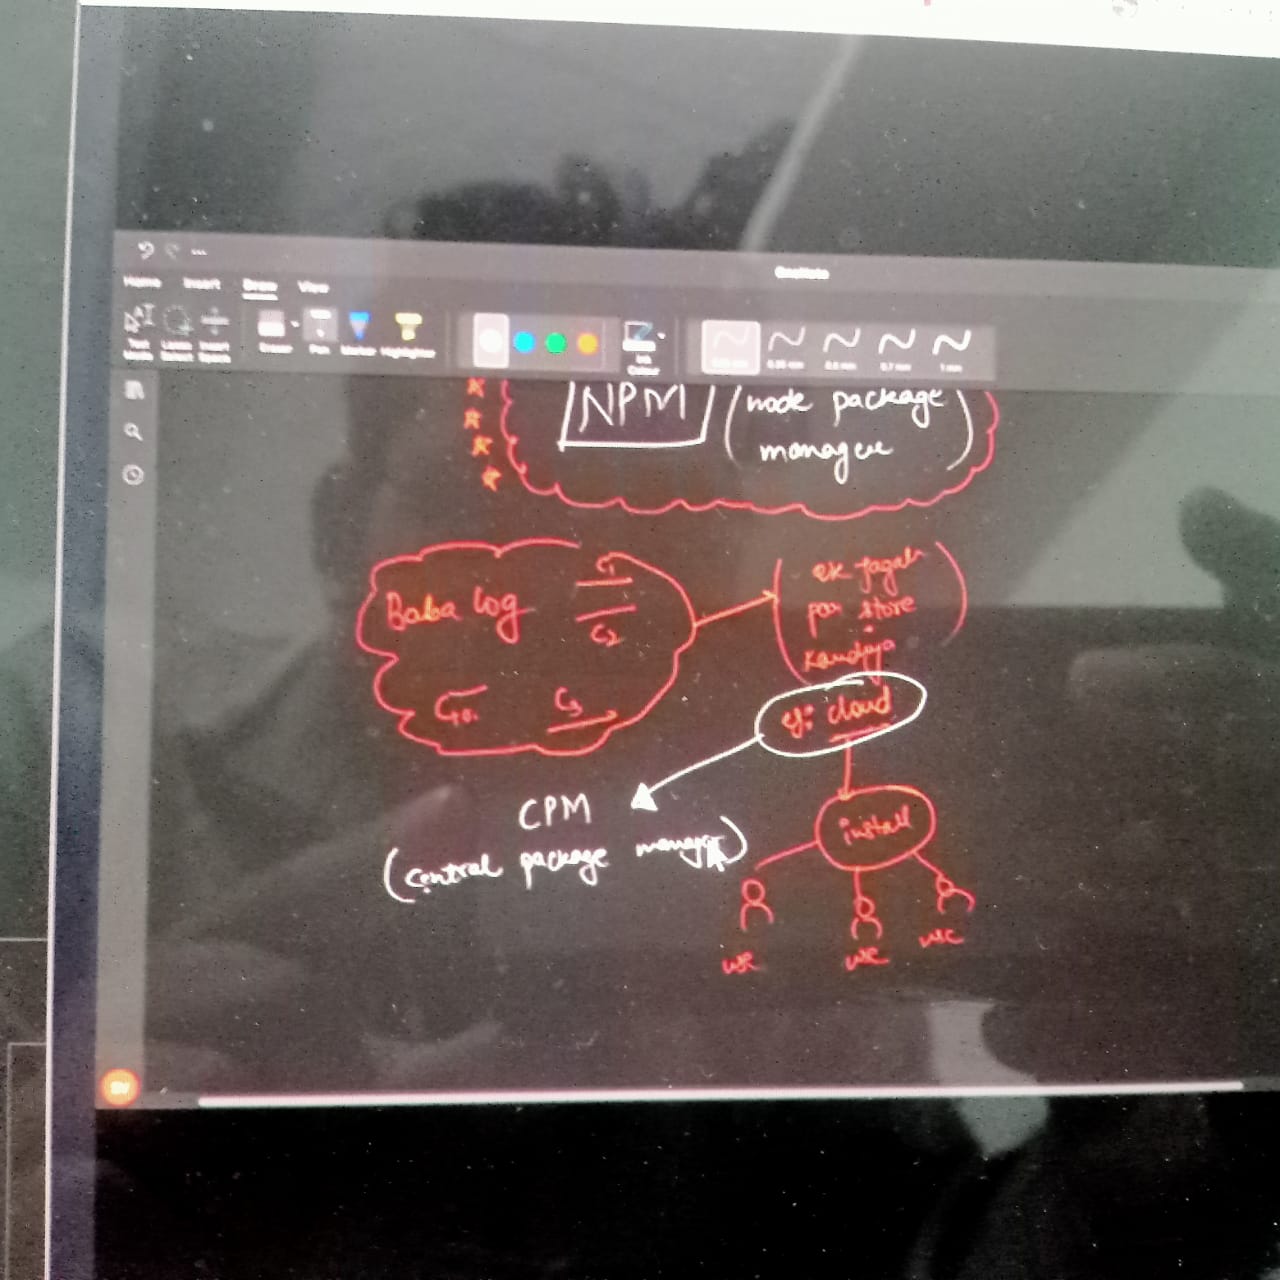 OneNote
Home Insert Draw View
Text Mode Lasso Select Insert Space Eraser Pen Marker Highlighter Ink Colour 0.35 mm 0.5 mm 0.7 mm 1 mm
NPM (node package
manager)
Baba log C1
C2
C3
(ek jagah
par store
eg: cloud
CPM
(central package manager)
install